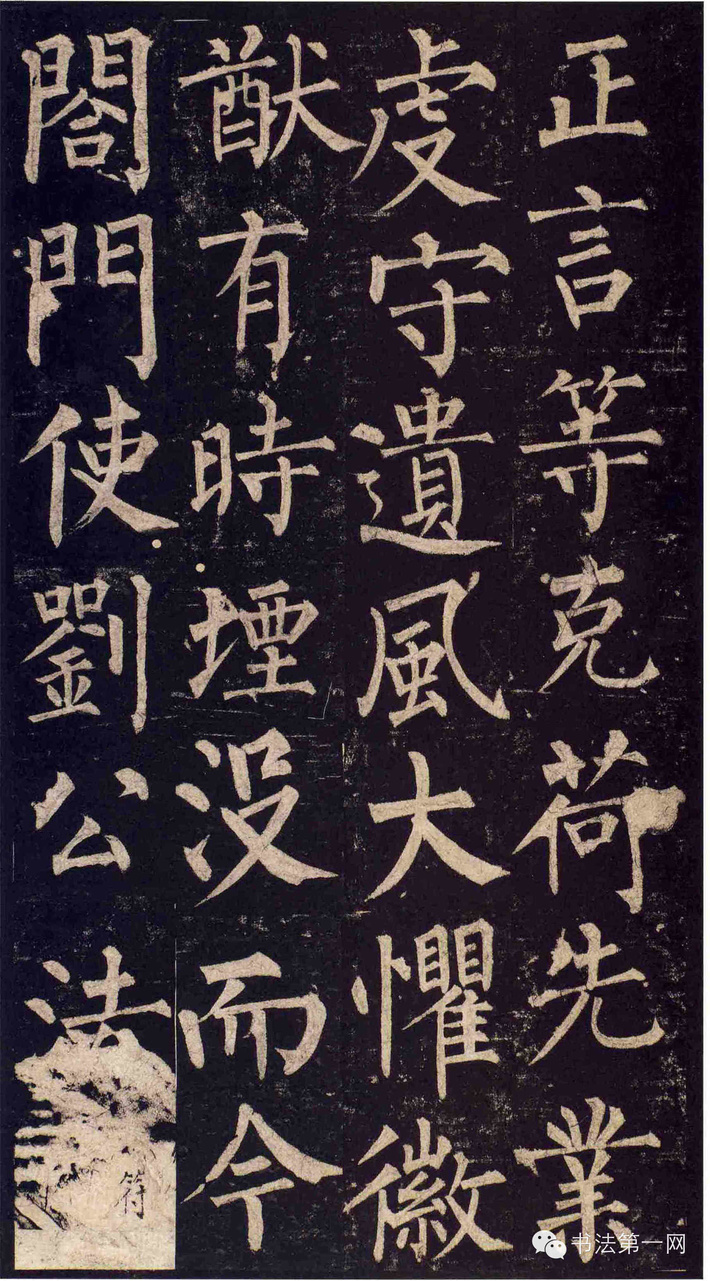 正言等克荷先業
虔守遺風大懼徽
猷有時堙没而今
閤門使劉公法
符
书法第一网